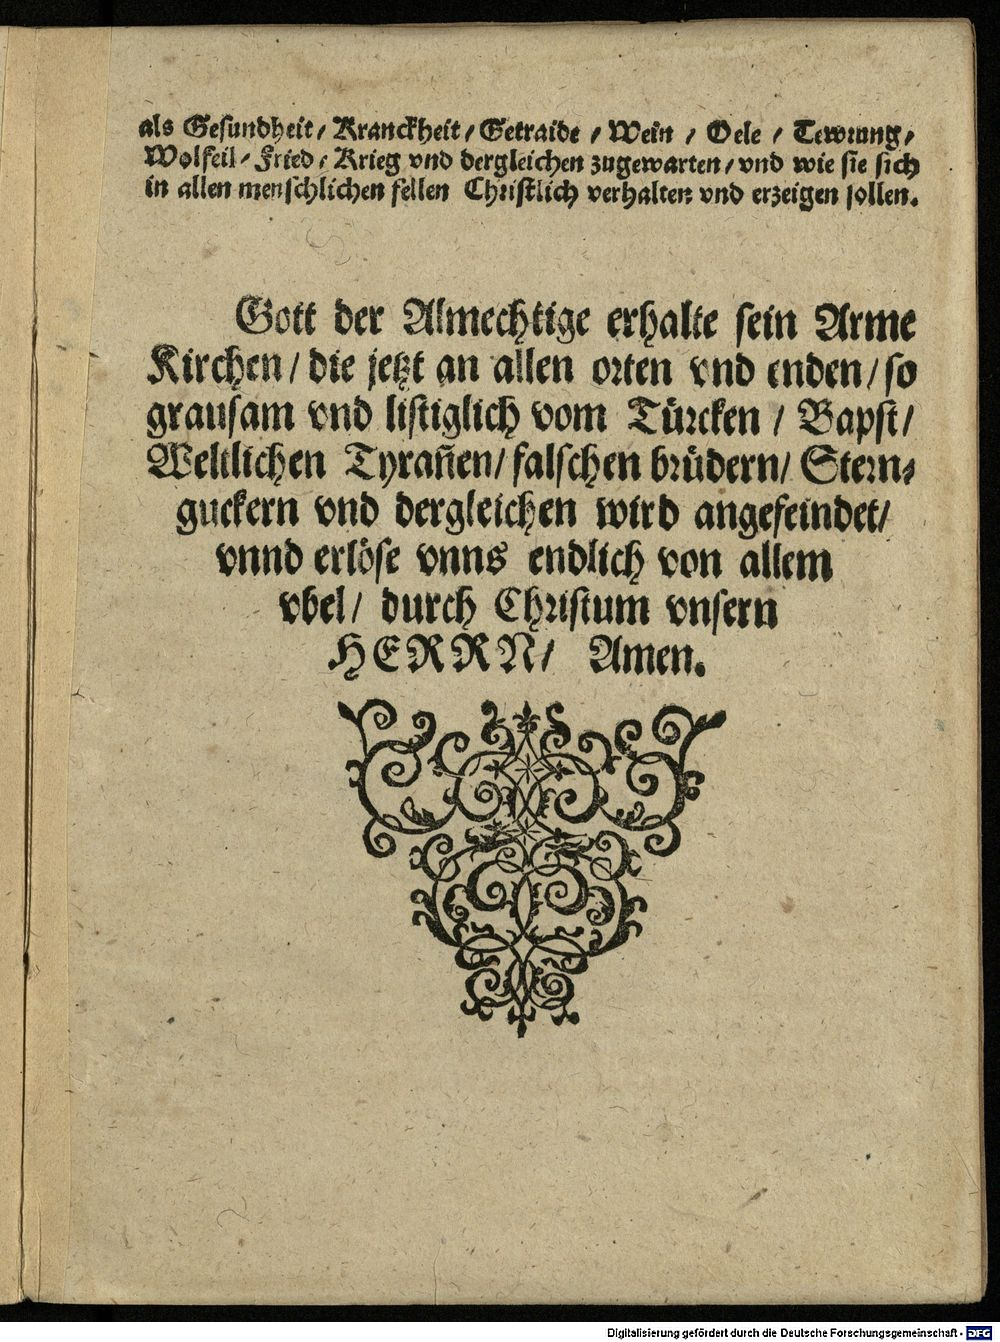 als Gesundheit / Kranckheit / Getraide / Wein / Oele / Tewrung /
Wolfeil / Fried / Krieg vnd dergleichen zugewarten / vnd wie sie sich
in allen menschlichen fellen Christlich verhalten vnd erzeigen sollen.
Gott der Almechtige erhalte sein Arme
Kirchen / die jetzt an allen orten vnd enden / so
grausam vnd listiglich vom Türcken / Bapst /
Weltlichen Tyrañen / falschen brüdern / Stern⸗
guckern vnd dergleichen wird angefeindet /
vnnd erlöse vnns endlich von allem
vbel / durch Christum vnsern
HERRN / Amen.
Digitalisierung gefördert durch die Deutsche Forschungsgemeinschaft - DFG